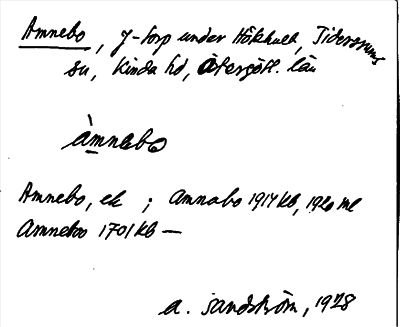 Amnebo, f-torp under Hökhult, Tidersrums
sn, Kinda hd, Östergötl. län
àmnebo
Amnebo, ek ; Amnabo 1917 kb, 1920 ml
Amneboo 1701 kb —
A. Sandström, 1928